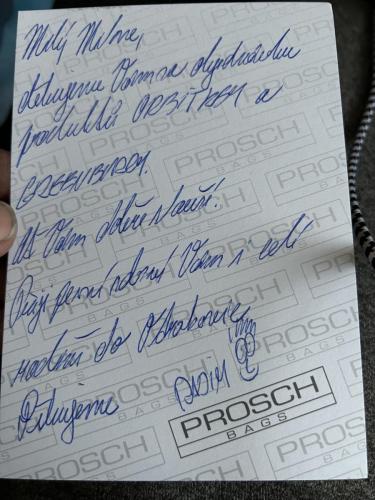 Milý Milane,
děkujeme Vám za objednávku
produktů ORBITKEY a
GREENBURRY.
Ať Vám dobře slouží!
Přeji pevné zdraví Vám i celé
rodině do Strakonic
Děkujeme RADIM
PROSCH
BAGS